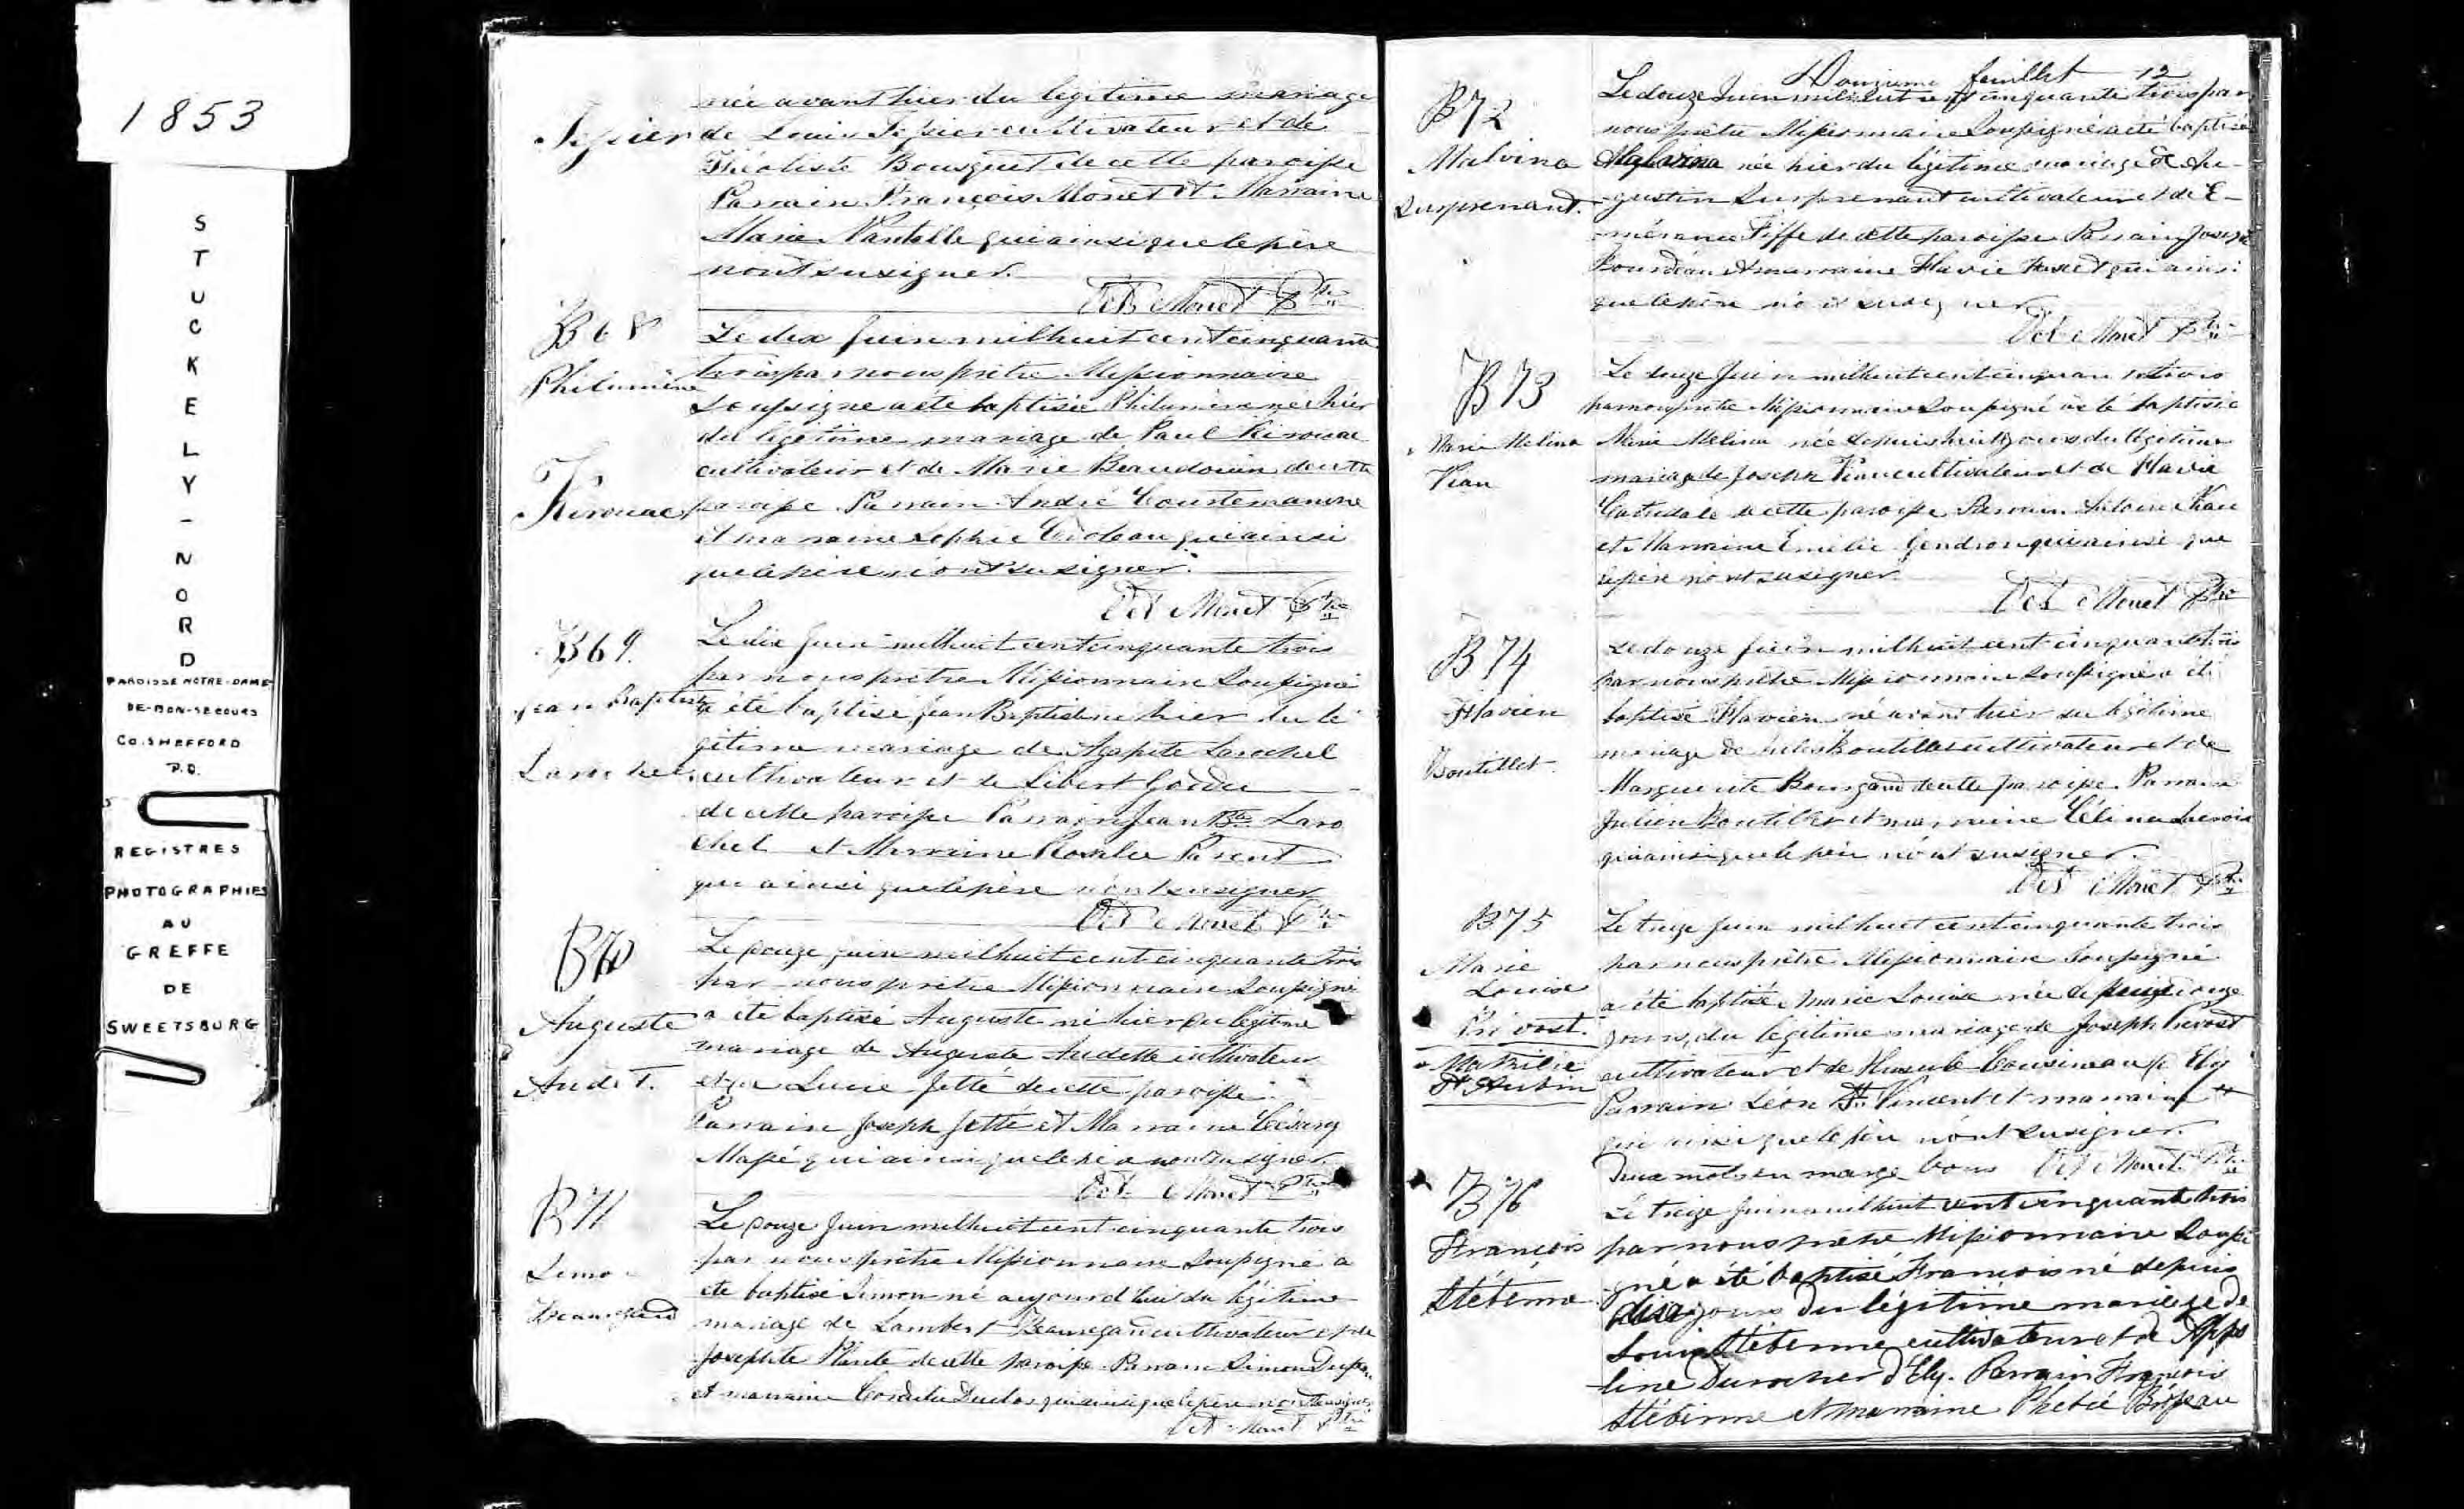 1853
STUCKELY-NORD
PAROISSE NOTRE-DAME-
DE-BON-SECOURS
CO. SHEFFORD
P.Q.
REGISTRES
PHOTOGRAPHIES
AU
GREFFE
DE
SWEETSBURG
née avant hier du légitime mariage
Tessier de Louis Tessier cultivateur et de
Bousquet de cette paroisse
Parrain François Monet et Marraine
Marie qui ainsi que le père
n'ont su signer.
Oct Monet Ptre
B 68
Philumène
Kirouac
Le dix Juin mil huit cent cinquante
trois par nous prêtre Missionnaire
soussigné a été baptisée Philumène née hier
du légitime mariage de Paul Kirouac
cultivateur et de Marie Beaudouin de cette
paroisse Parrain André Courtemanche
et marraine Sophie qui ainsi
que le père n'ont su signer.
Oct Monet Ptre
B 69.
Jean Baptiste
Larochel
Le dix Juin mil huit cent cinquante trois
par nous prêtre Missionnaire Soussigné
a été baptisé Jean Baptiste né hier du lé
gitime mariage de Agapite Larochel
cultivateur et de Libert Goddu
de cette paroisse Parrain Jean Bte Laro
chel et Marraine Rosalie Parent
qui ainsi que le père n'ont su signer
Oct Monet Ptre
B 70
Auguste
Audet.
Le douze juin mil huit cent cinquante trois
par nous prêtre Missionnaire Soussigné
a été baptisé Auguste né hier du légitime
mariage de Auguste Audette cultivateur
et de Lucie Jetté de cette paroisse
Parrain Joseph Jetté et Marraine
Massé qui ainsi que le père n'ont su signer
Oct Monet Ptre
B 71
Simon
Beauregard
Le douze Juin mil huit cent cinquante trois
par nous prêtre Missionnaire Soussigné a
été baptisé Simon né aujourd'hui du légitime
mariage de Lambert Beauregard cultivateur et de
Josephte Plante de cette paroisse Parrain Simon
et marraine Duclos qui ainsi que le père n'ont su signer
Oct Monet Ptre
Douzieme feuillet 12
B 72
Malvina
Surprenant.
Le douze Juin mil huit cent cinquante trois par
nous prêtre Missionnaire Soussigné a été baptisée
Malvina née hier du légitime mariage de Au-
gustin Surprenant cultivateur et de E-
mérance Fiffe de cette paroisse Parrain Joseph
Bourdeau et marraine Flavie qui ainsi
que le père n'ont su signer
Oct Monet Ptre
B 73
Marie Melina
Viau
Le douze Juin mil huit cent cinquante trois
par nous prêtre Missionnaire Soussigné a été baptisée
Marie Melina née depuis huit jours du légitime
mariage de Joseph Viau cultivateur et de Flavie
de cette paroisse Parrain Antoine Viau
et Marraine Emélie Gendron qui ainsi que
le père n'ont su signer.
Oct Monet Ptre
B 74
Flavien
Boutillet.
Le douze juin mil huit cent cinquante trois
par nous prêtre Missionnaire Soussigné a été
baptisé Flavien né avant hier du légitime
mariage de Jules Boutillet cultivateur et de
Marguerite de cette paroisse. Parrain
Julien Boutillet et marraine Célina
qui ainsi que le père n'ont su signer.
Oct Monet Ptre
B 75
Marie
Louise
Prévost.
* Mathilde
St Aubin
Le treize Juin mil huit cent cinquante trois
par nous prêtre Missionnaire Soussigné
a été baptisée Marie Louise née depuis onze
jours, du légitime mariage de Joseph Prévost
cultivateur et de Cousineau d'Ely
Parrain Léon St Vincent et marraine *
qui ainsi que le père n'ont su signer.
Deux mots en marge bons Oct Monet Ptre
B 76
François
Stébenne
Le treize Juin mil huit cent cinquante trois
par nous prêtre Missionnaire Soussi
gné a été baptisé François né depuis
dix jours du légitime mariage de
Louis Stébenne cultivateur et de Appo
line Durocher d'Ely. Parrain François
Stébenne et marraine